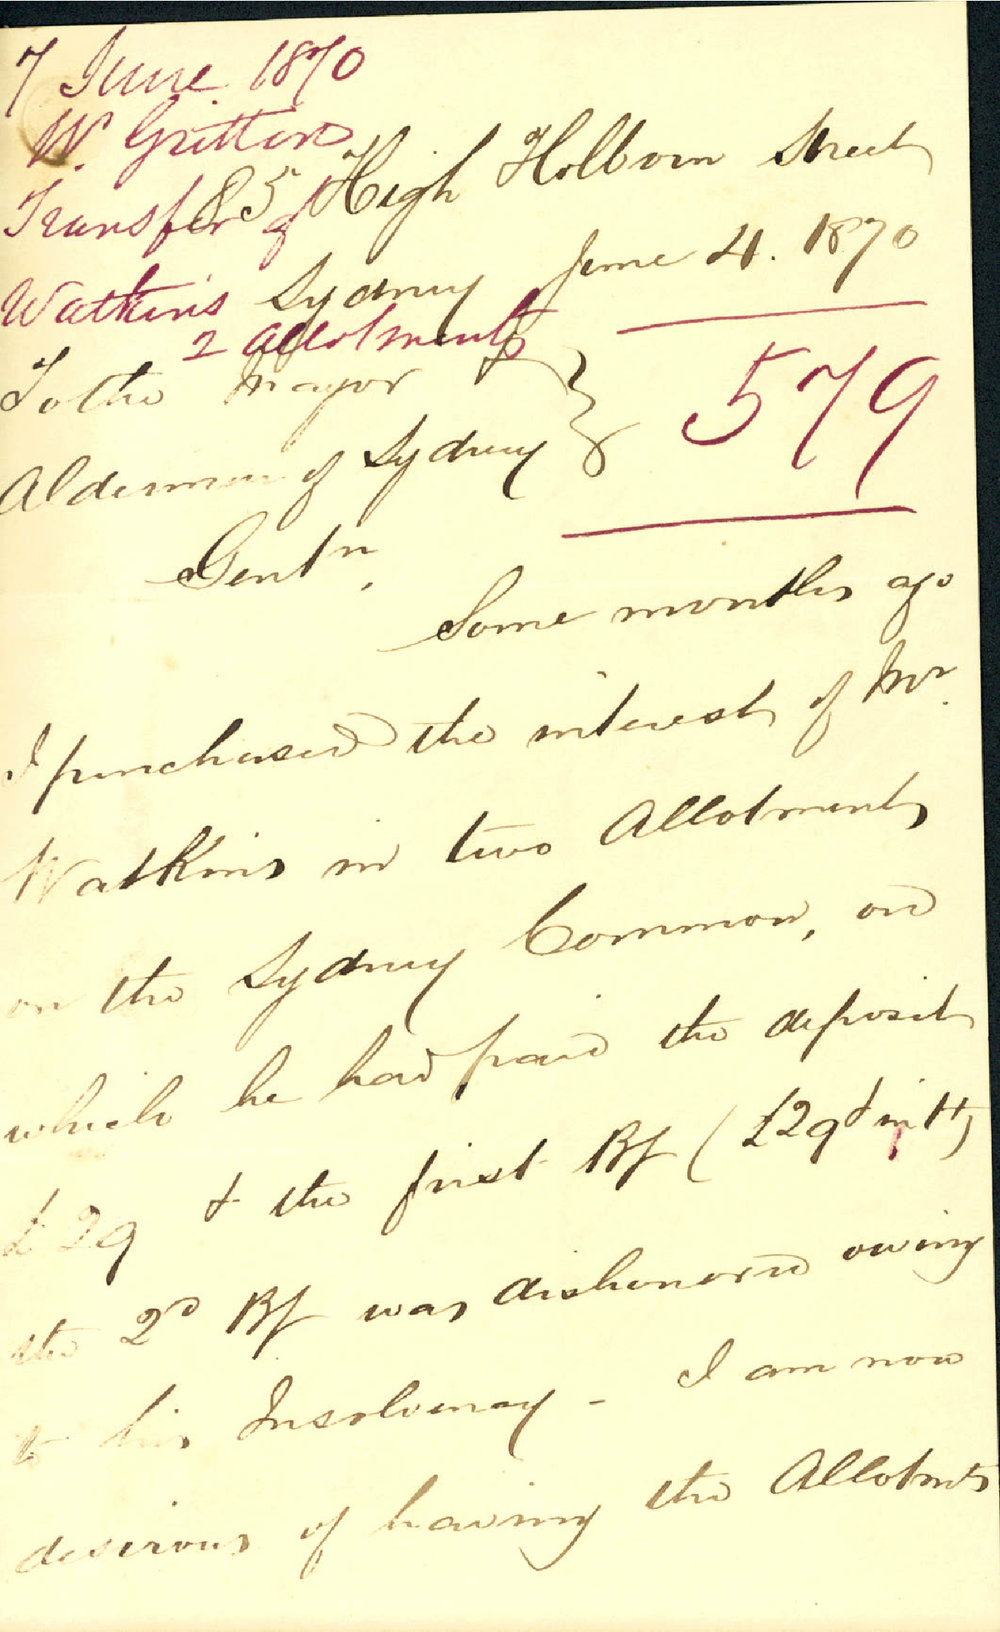 7 June 1870
W. Gritten
Transfer of
Watkins
2 allotments
85 High Holborn Street
Sydney June 4. 1870
579
To the Mayor
Aldermen of Sydney
Gentn,
Some months ago
I purchased the interest of Mr.
Watkins in two Allotments
on the Sydney Common, on
which he had paid the deposit
£29 & the first Bf (£29 & int)
the 2d Bf was dishonored owing
to his Insolvency - I am now
desirous of having the Allotmts